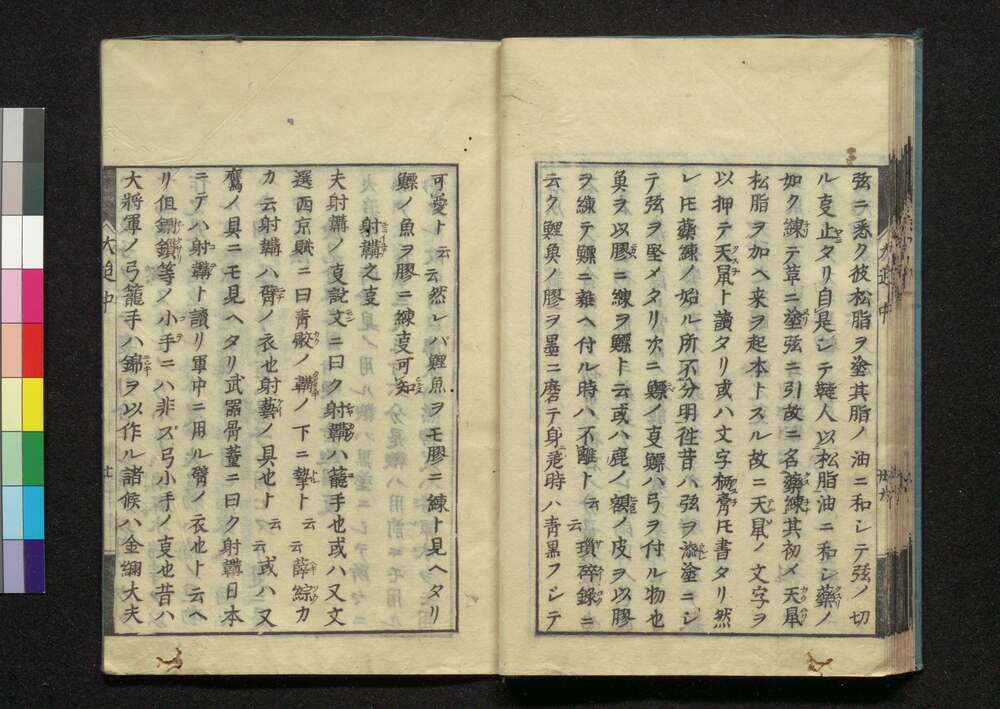 弦ニ悉ク彼松脂ヲ塗其脂ノ油ニ和シテ弦ノ切
ル㕝止タリ自是シテ韃人以松脂油ニ和シ藥ノ
如ク練テ草ニ塗弦ニ引故ニ名藥練其初メ天鼡
松脂ヲ加ヘ来ヲ起本トスル故ニ天鼡ノ文字ヲ
以押テ天鼠ト讀タリ或ハ文字 膏𪜈書タリ然
レ𪜈藥練ノ始ル所不分明徃昔ハ弦ヲ漆塗ニシ
テ弦ヲ堅メタリ次ニ鰾ノ㕝鰾ハ弓ヲ付ル物也
魚ヲ以膠ニ練ヲ鰾ト云或ハ鹿ノ ノ皮ヲ以膠
ヲ練テ鰾ニ雜ヘ付ル時ハ不離ト云云瑣碎録ニ
云ク鯉魚ノ膠ヲ墨ニ磨テ身 時ハ青黒フシテ
可愛ト云云然レバ鯉魚ヲモ膠ニ練ト見ヘタリ
鰾ノ魚ヲ膠ニ練㕝可知
射韝之㕝
夫射韝ノ㕝說文ニ曰ク射韝ハ蘢手也或ハ又文
選西京賦ニ曰青骹ノ韝ノ下ニ摯ト云云薛綜カ
カ云射韝ハ臂ノ衣也射藝ノ具也ト云云或ハ又
鷹ノ具ニモ見ヘタリ武器骨董ニ曰ク射韝日本
ニテハ射韝ト讀リ軍中ニ用ル臂ノ衣也ト云ヘ
リ但鏁鎖等ノ小手ニハ非ズ弓小手ノ㕝也昔ハ
大將軍ノ弓籠手ハ錦ヲ以作ル諸候ハ金襴大夫
大追中